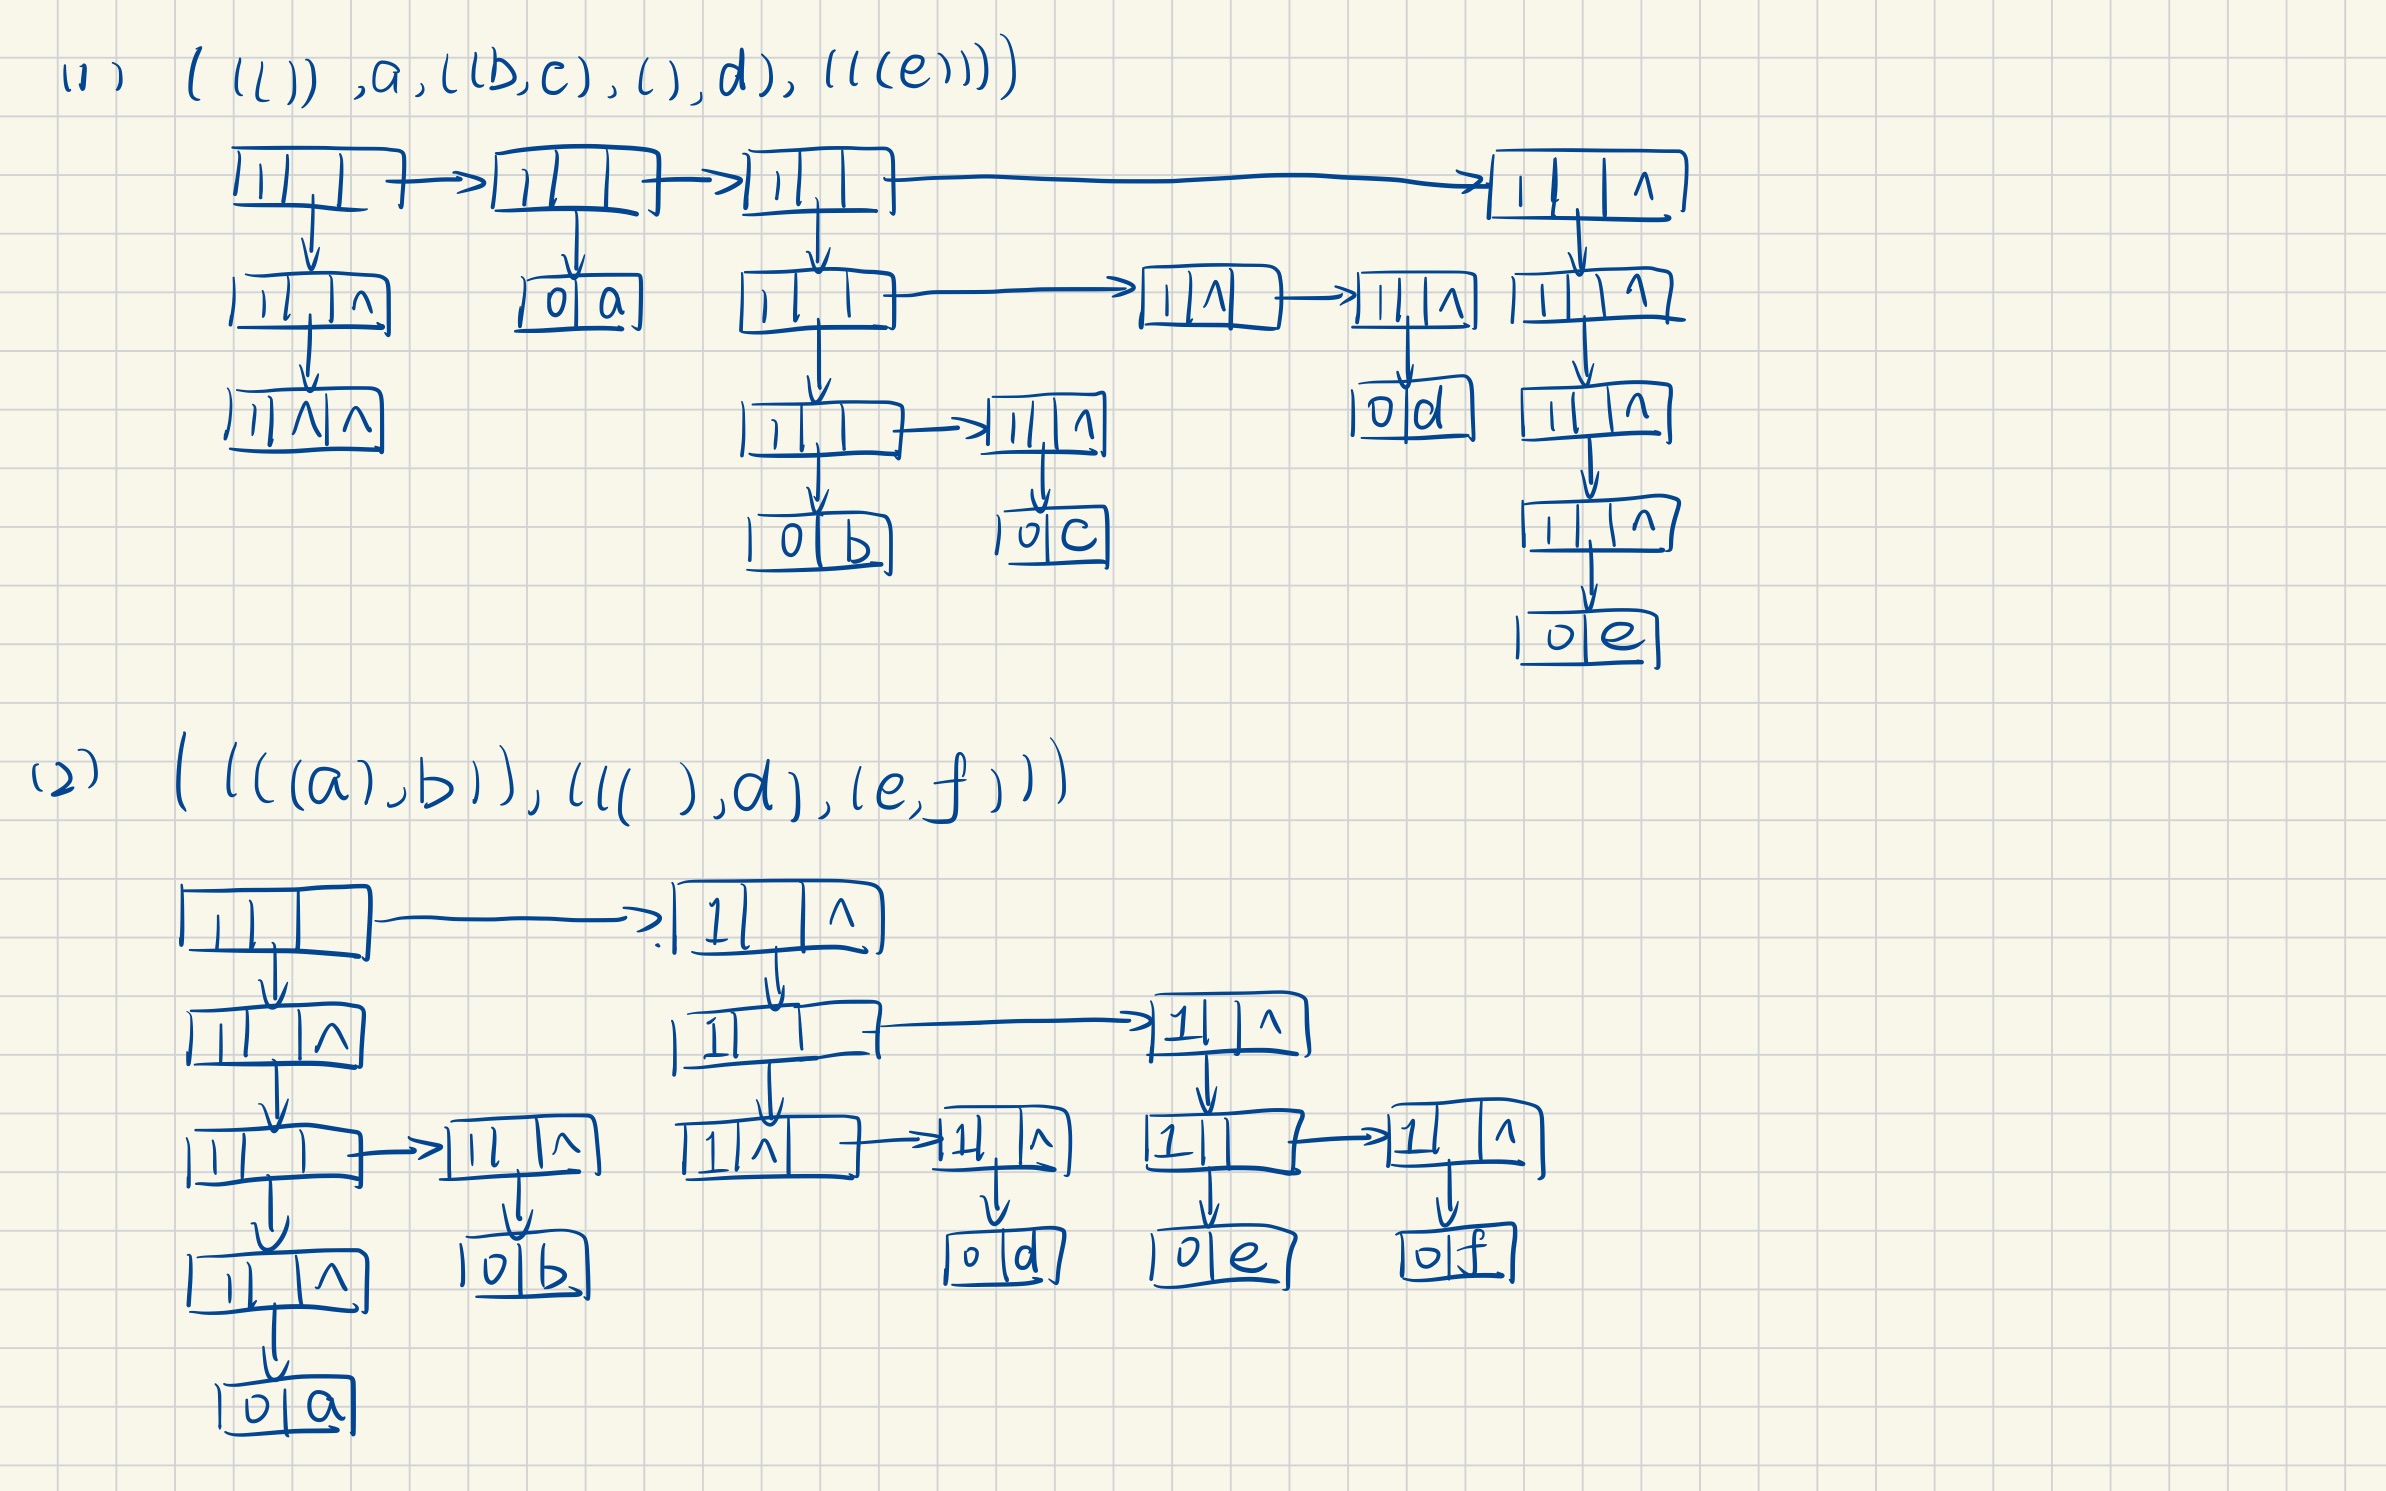 (1) ( (( )) ,a,((b,c),(),d),(((e))))
1 1 1 1 ∧
1 ∧ 0 a 1 1 ∧ 1 ∧ 1 ∧
1 ∧ ∧ 1 1 ∧ 0 d 1 ∧
0 b 0 c 1 ∧
0 e
(2) ((((a),b)),((( ),d),(e,f)))
1 1 ∧
1 ∧ 1 1 ∧
1 1 ∧ 1 ∧ 1 ∧ 1 1 ∧
1 ∧ 0 b 0 d 0 e 0 f
0 a